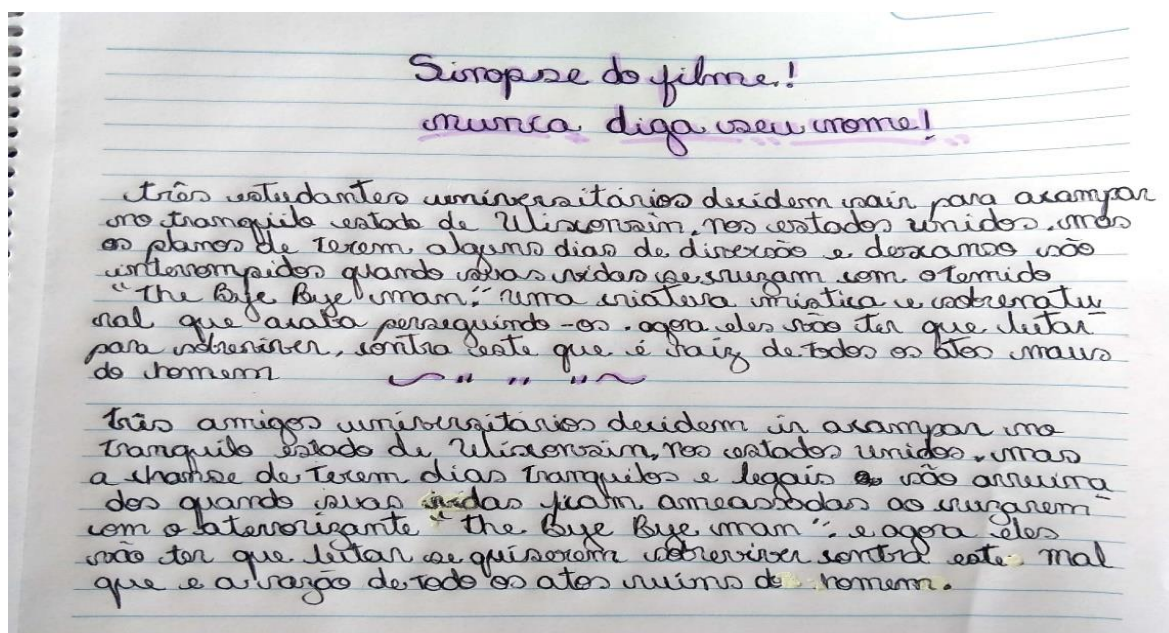 Sinopse do filme!
nunca diga seu nome!
três estudantes universitários decidem sair para acampar
no tranquilo estado de Wisconsin, nos estados unidos. mas
os planos de terem alguns dias de diversão e descanso são
interrompidos quando suas vidas se cruzam com o temido
"The Bye Bye man": uma criatura mística e sobrenatu
ral que acaba perseguindo-os. agora eles vão ter que lutar
para sobreviver, contra este que é raiz de todos os atos maus
do homem
três amigos universitários decidem ir acampar no
tranquilo estado de Wisconsin, nos estados unidos. mas
a chanse de terem dias tranquilos e legais são arruina
dos quando suas vidas ficam ameassadas ao cruzarem
com o aterrorizante "the Bye Bye man". e agora eles
vão ter que lutar se quiserem sobreviver contra este mal
que e a razão de todo os atos ruins do homem.